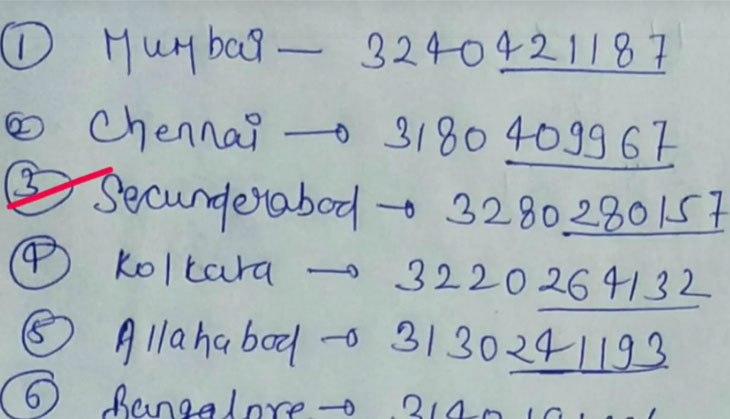 ① Mumbai — 3240421187
② Chennai → 3180409967
③ Secunderabad → 3280280157
④ Kolkata → 3220264132
⑤ Allahabad → 3130241193
⑥ Bangalore →